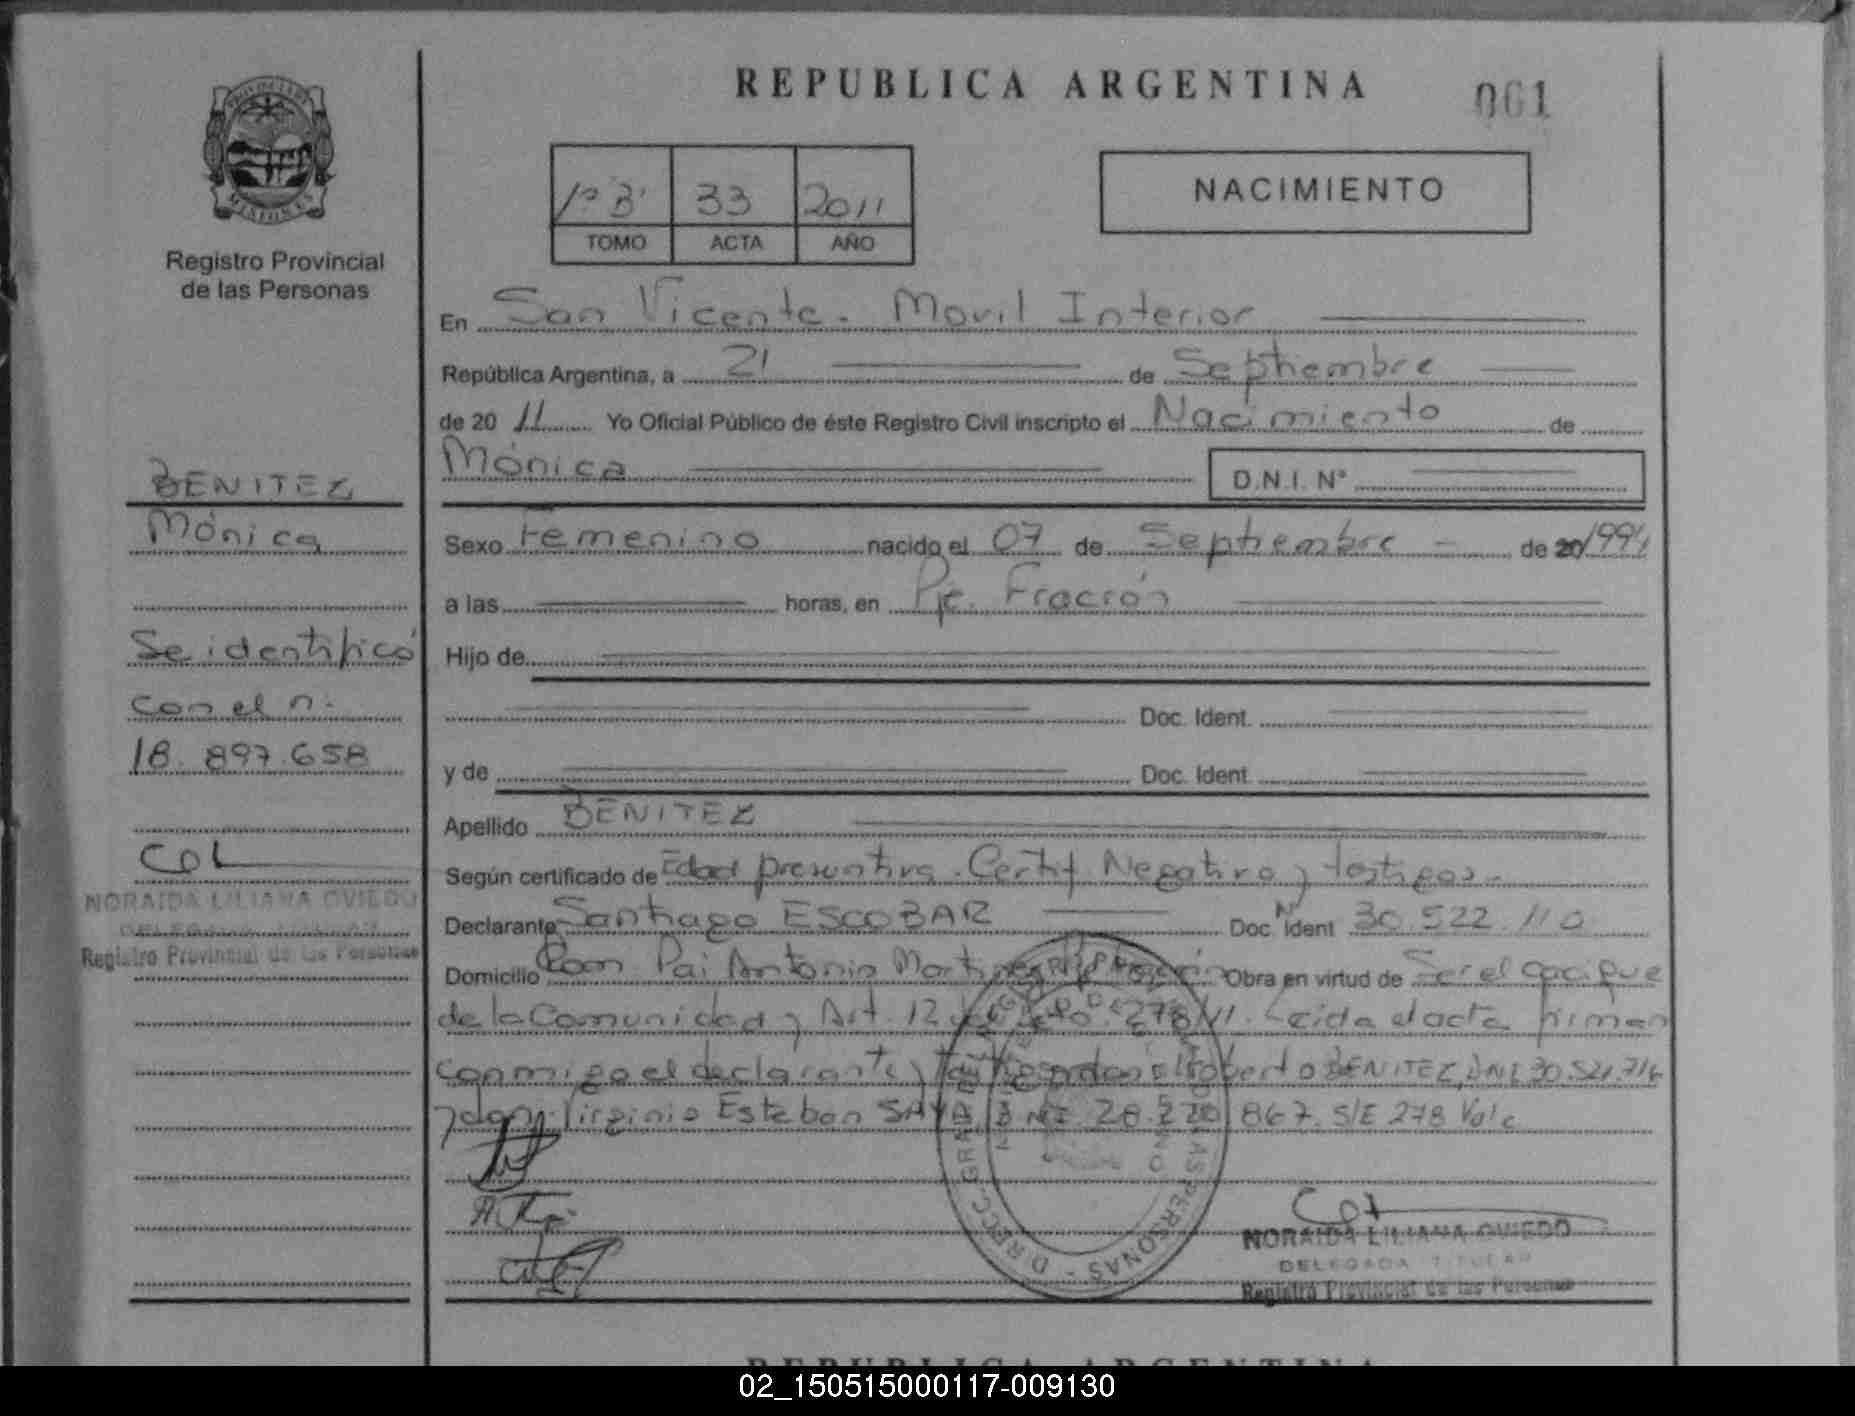 REPUBLICA ARGENTINA
061
PROVINCIA DE MISIONES
Registro Provincial
de las Personas
1º "B" 33 2011
TOMO ACTA AÑO
NACIMIENTO
En San Vicente - Movil Interior
República Argentina, a 21 de Septiembre
de 20 11 Yo Oficial Público de éste Registro Civil inscripto el Nacimiento de
Mónica D.N.I. Nº
BENITEZ
Mónica
Se identificó
con el n:
18.897.658
NORAIDA LILIANA OVIEDO
DELEGADA TITULAR
Registro Provincial de las Personas
Sexo Femenino nacido el 07 de Septiembre - de 20 1994
a las horas, en Pje. Fracrón
Hijo de
Doc. Ident.
y de Doc. Ident.
Apellido BENITEZ
Según certificado de Edad presuntiva. Certif. Negativo y testigos.
Declarante Santiago ESCOBAR Doc. Ident Nº 30.522.110
Domicilio Com. Pai Antonio Martinez Pje Fracrón Obra en virtud de Ser el cacique
de la Comunidad y Art. 12 278/11. Leida el acta firman
conmigo el declarante y testigos don Roberto BENITEZ, DNI 30.521.716
y don Virginio Esteban DNI 28.270.867. S/E 278 Vale
NORAIDA LILIANA OVIEDO
DELEGADA TITULAR
Registro Provincial de las Personas
REPUBLICA ARGENTINA
02_150515000117-009130